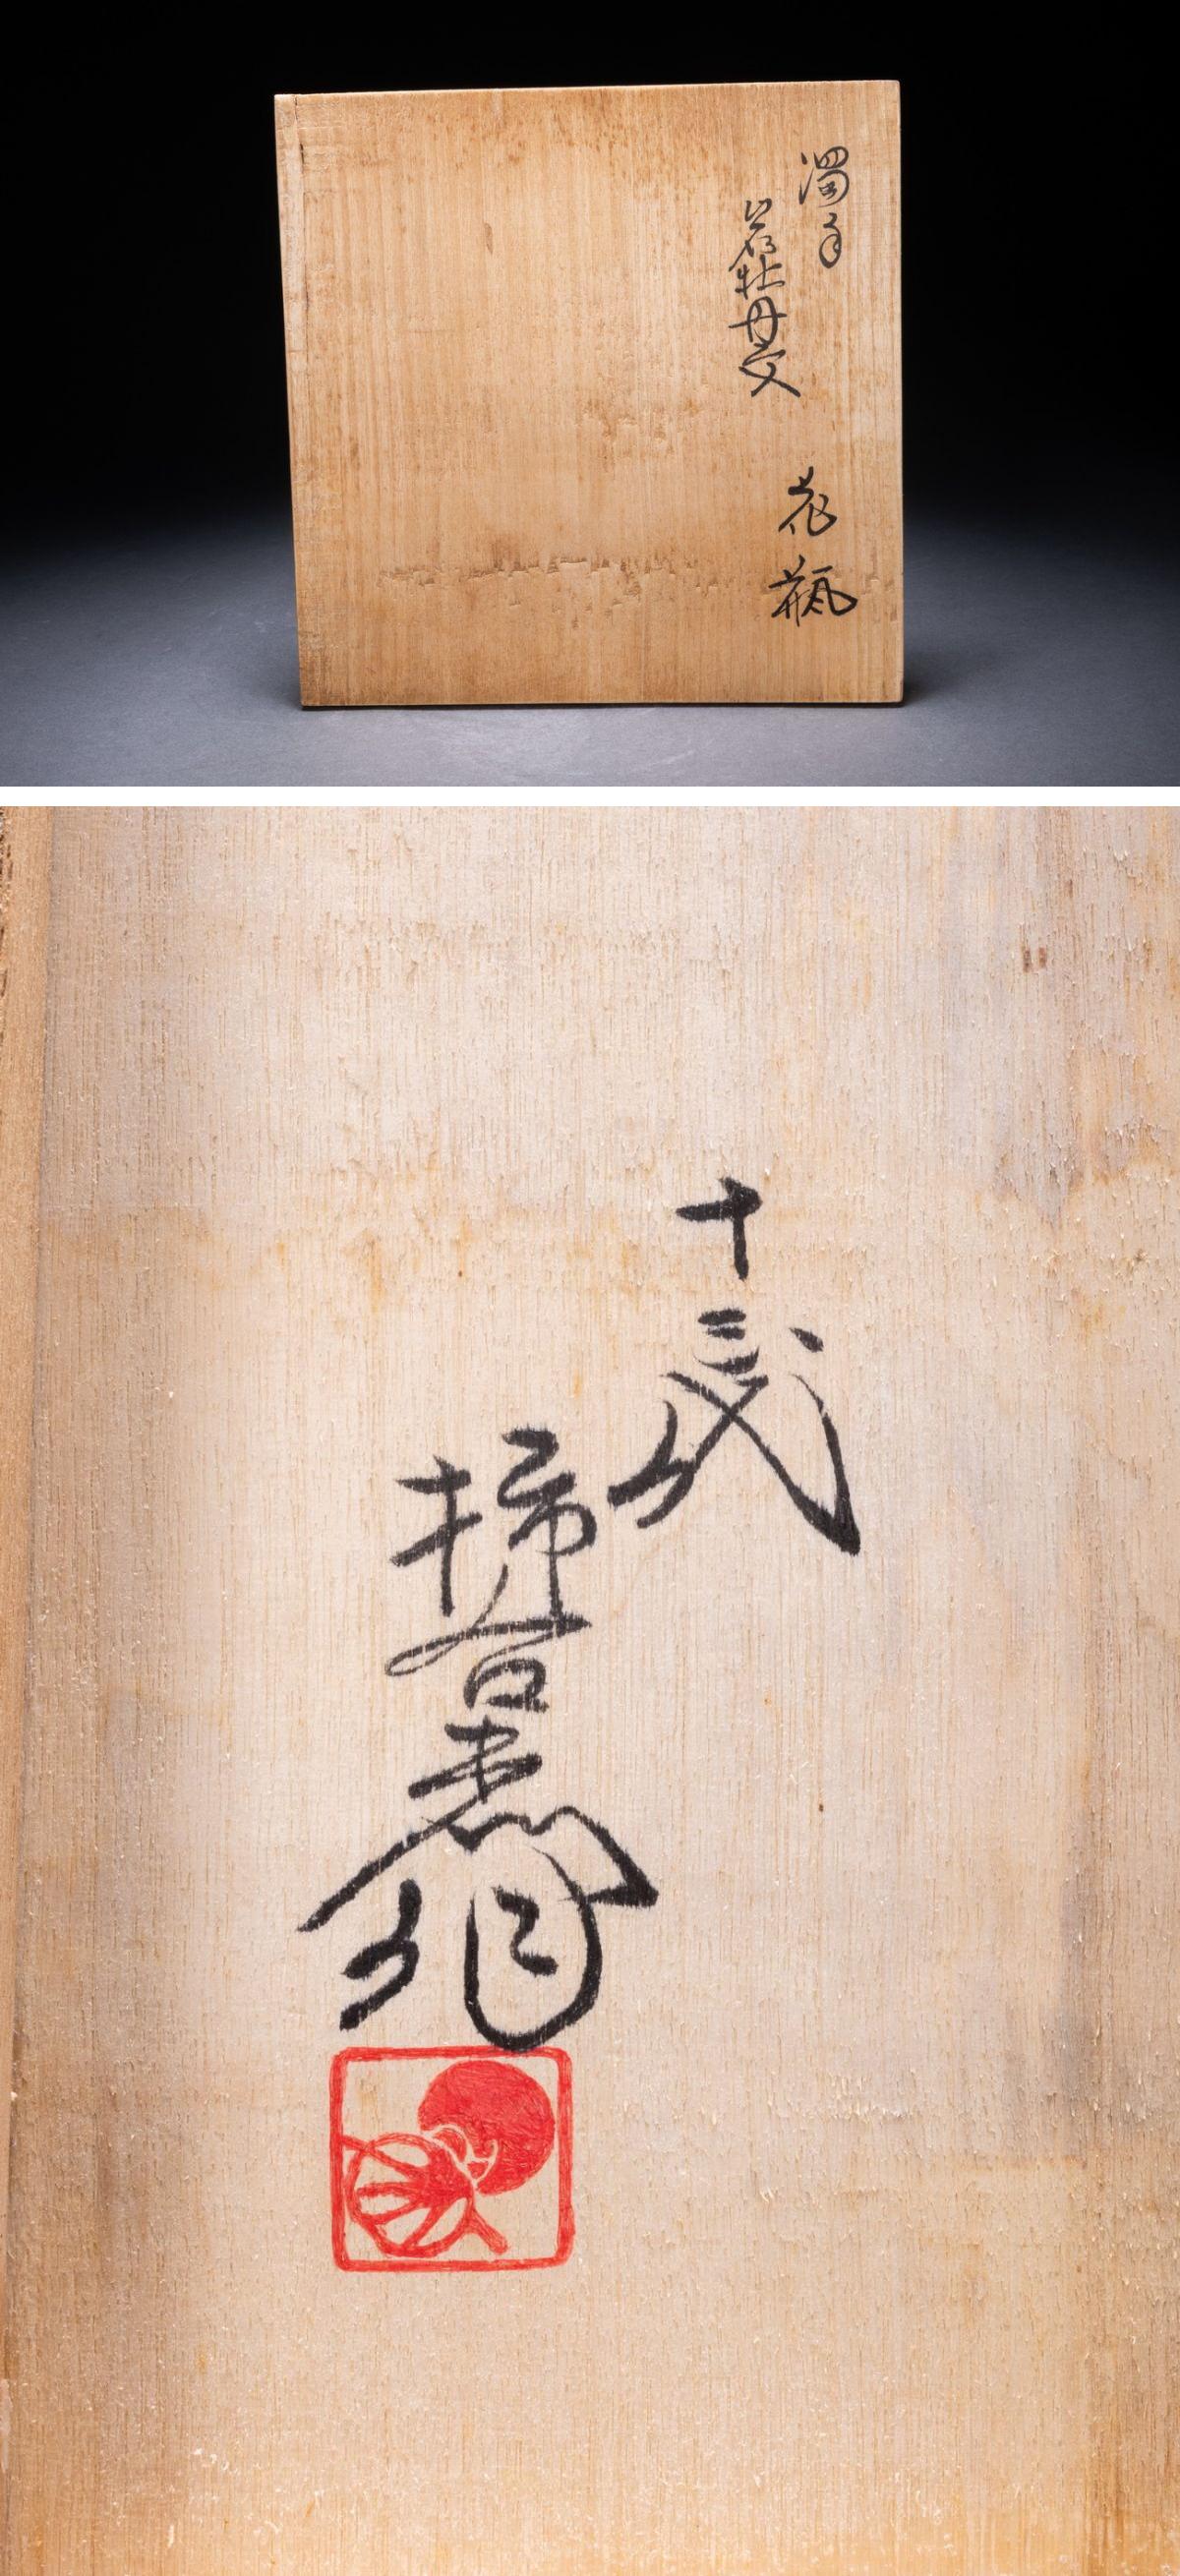 濁手
岩牡丹文
花瓶
十三代
柿右衛門